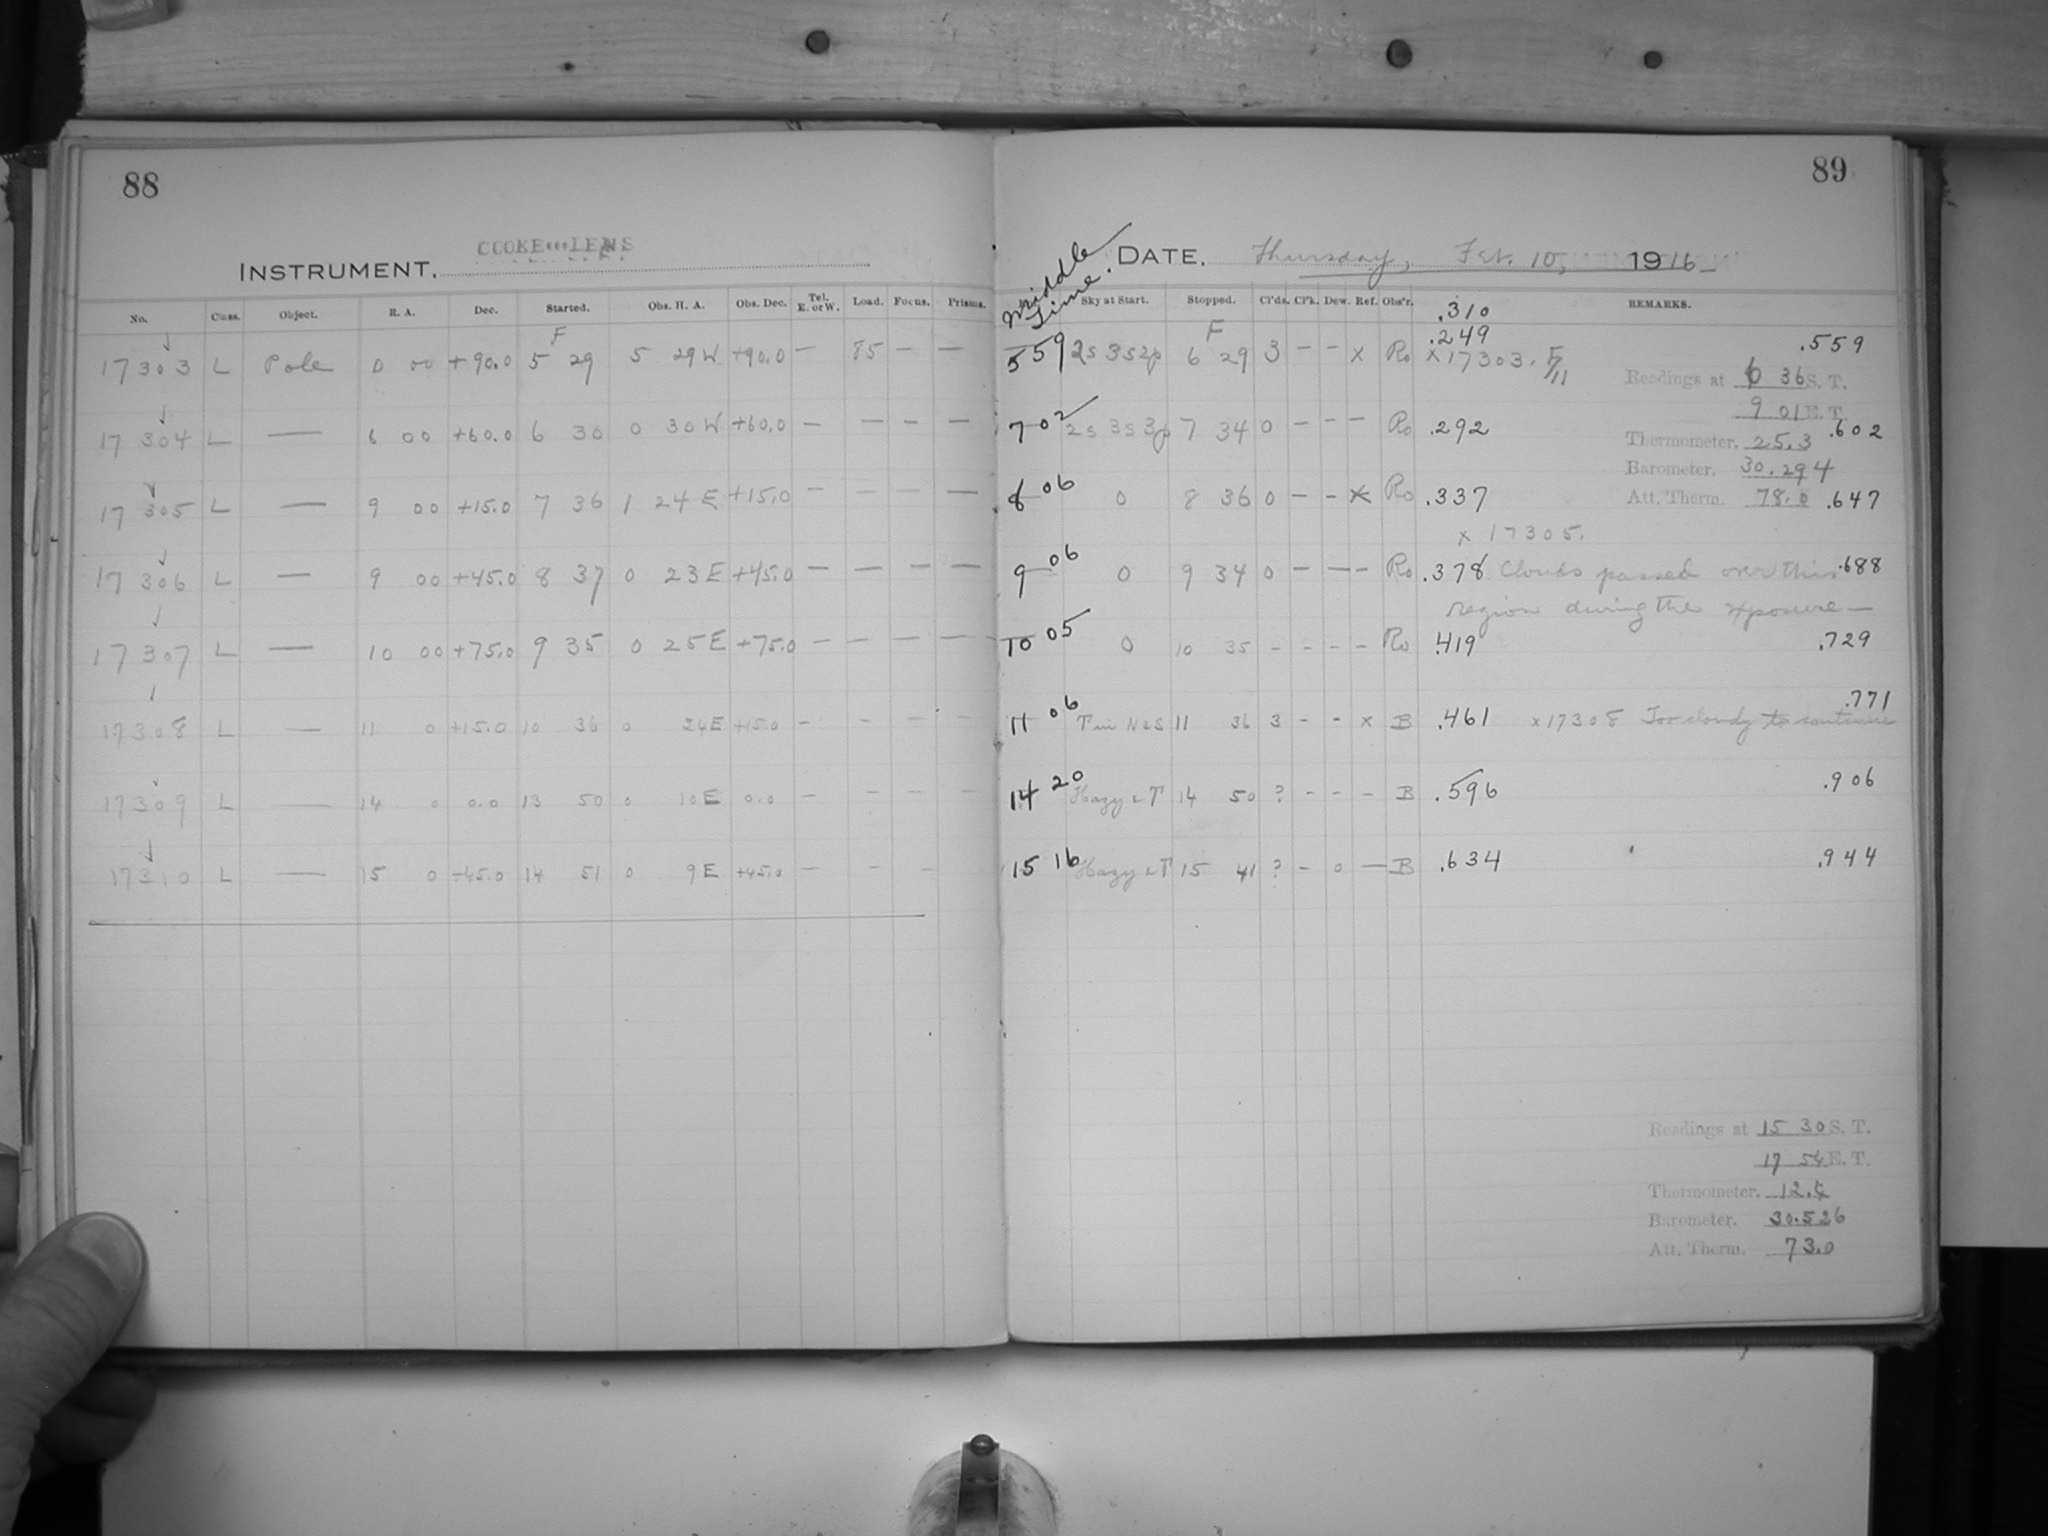 88
INSTRUMENT. COOKE LENS
No. Class. Object. R. A. Dec. Started. Obs. H. A. Obs. Dec. Tel. E. or W. Load. Focus. Prisms.
F
17303 L Pole 0 00 +90.0 5 29 5 29 W +90.0 — 85 — —
17304 L — 6 00 +60.0 6 30 0 30 W +60.0 — — — —
17305 L — 9 00 +15.0 7 36 1 24 E +15.0 — — — —
17306 L — 9 00 +45.0 8 37 0 23 E +45.0 — — — —
17307 L — 10 00 +75.0 9 35 0 25 E +75.0 — — — —
17308 L — 11 0 +15.0 10 36 0 24 E +15.0 - - - -
17309 L — 14 0 0.0 13 50 0 10 E 0.0 - - - -
17310 L — 15 0 +45.0 14 51 0 9 E +45.0 — - - —
89
DATE. Thursday, Feb. 10, 1916
Middle Time. Sky at Start. Stopped. Cl'ds. Cl'k. Dew. Ref. Obs'r. REMARKS.
.310
F .249 .559
5 59 2s 3s2p 6 29 3 - - x Ro x 17303. F/11
Readings at 6 36 S. T.
9 01 E. T.
7 02 2s 3s 3p 7 34 0 - - - Ro .292 .602
Thermometer. 25.3
Barometer. 30.294
Att. Therm. 78.0
8 06 0 8 36 0 - - x Ro .337 .647
x 17305.
9 06 0 9 34 0 - - - Ro .378 Clouds passed over this .688
region during the exposure —
10 05 0 10 35 - - - - Ro .419 .729
11 06 T in N & S 11 36 3 - - x B .461 x 17308 Too cloudy to continue .771
14 20 Hazy & T 14 50 ? - - - B .596 .906
15 16 Hazy & T 15 41 ? - 0 — B .634 .944
Readings at 15 30 S. T.
17 54 E. T.
Thermometer.
Barometer. 30.526
Att. Therm. 73.0